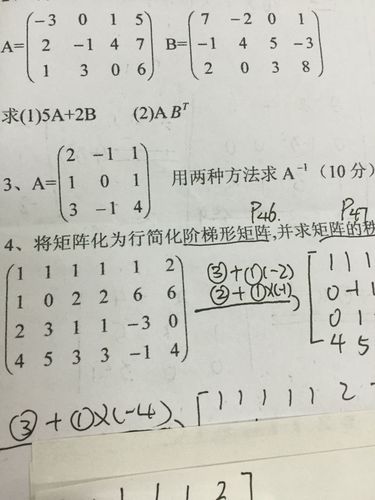 A=(-3 0 1 5
2 -1 4 7
1 3 0 6) B=(7 -2 0 1
-1 4 5 -3
2 0 3 8)
求(1)5A+2B (2)A B^T
3、A=(2 -1 1
1 0 1
3 -1 4) 用两种方法求 A^-1 (10分)
P46. P47
4、将矩阵化为行简化阶梯形矩阵,并求矩阵的秩
(1 1 1 1 1 2
1 0 2 2 6 6
2 3 1 1 -3 0
4 5 3 3 -1 4)
③+①(-2)
②+①×(-1)
[1 1 1
0 -1
0 1
4 5
③+①×(-4) [1 1 1 1 1 2
1 1 1 2]